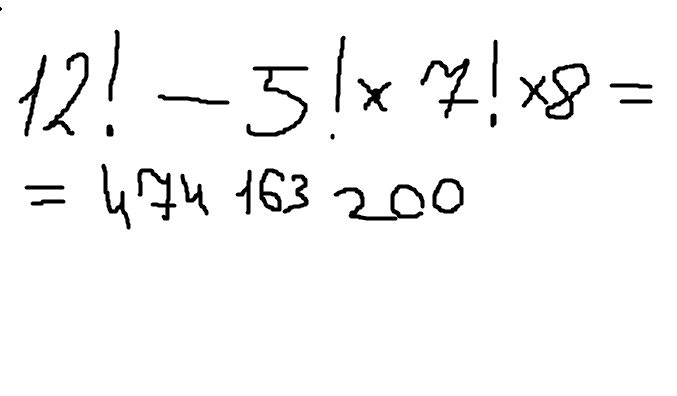 12! - 5! × 7! × 8 =
= 474 163 200